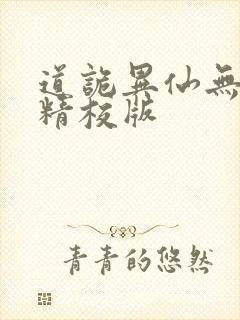 道詭異仙無
精校版
青青的悠然